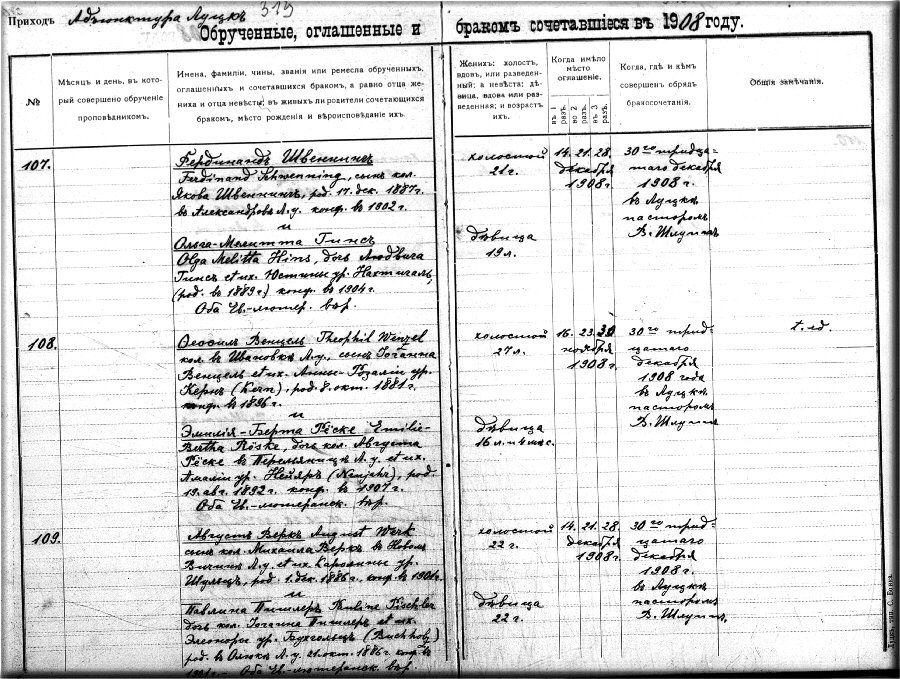 Приходъ Адъюнктура Луцкъ 319
Обрученные, оглашенные и бракомъ сочетавшіеся въ 1908 году.
№
Мѣсяцъ и день, въ кото-
рый совершено обрученіе
проповѣдникомъ.
Имена, фамиліи, чины, званія или ремесла обрученныхъ,
оглашенныхъ и сочетавшихся бракомъ, а равно отца же-
ниха и отца невѣсты; въ живыхъ ли родители сочетающихся
бракомъ, мѣсто рожденія и вѣроисповѣданіе ихъ.
Женихъ: холостъ,
вдовъ, или разведен-
ный; а невѣста: дѣ-
вица, вдова или раз-
веденная; и возрастъ
ихъ.
Когда имѣло
мѣсто
оглашеніе.
въ 1 разъ.
во 2 разъ.
въ 3 разъ.
Когда, гдѣ и кѣмъ
совершенъ обрядъ
бракосочетанія.
Общія замѣчанія.
107.
Фердинандъ Швеннингъ
Ferdinand Schwenning, сынъ кол.
Якова Швеннингъ, род. 17. дек. 1887 г.
въ Александровѣ Л. у. конф. въ 1902 г.
и
Ольга-Мелитта Гинсъ
Olga Melitta Hins, дочь Людвига
Гинсъ et их. Юстины ур. Нахтигаль,
(род. въ 1889 г.) конф. въ 1904 г.
Оба Ев.-лютер. вѣр.
холостой
21 г.
дѣвица
19 л.
14. 21. 28.
декабря
1908 г.
30го тридца-
таго декабря
1908 г.
въ Луцкѣ
пасторомъ
В. Шлуппъ
108.
Ѳеофилъ Венцель Theophil Wenzel
кол. въ Ивановкѣ Л. у., сынъ Іоганна
Венцель et их. Анны-Розаліи ур.
Кернъ (Kern), род. 8. окт. 1881 г.
конф. въ 1896 г.
и
Эмилія-Берта Рёске Emilie-
Bertha Röske, дочь кол. Августа
Рёске въ Перемьяницѣ Л. у. et их.
Амаліи ур. Нейяръ (Neujahr), род.
19. авг. 1892 г. конф. въ 1907 г.
Оба Ев.-лютеранск. вѣр.
холостой
27 л.
дѣвица
16 л. 4 мѣс.
16. 23. 30
ноября
1908 г.
30го трид-
цатаго
декабря
1908 года
въ Луцкѣ
пасторомъ
В. Шлуппъ
t. ed.
109.
Августъ Веркъ August Werk
сынъ кол. Михаила Веркъ въ Новом
et их. Каролины ур.
Шульцъ, род. 1. дек. 1886 г., конф. въ 1901 г.
и
Павлина Пишлеръ Pauline Pischler
дочь кол. Іоганна Пишлеръ et их.
Элеоноры ур. Бухгольцъ (Buchholz)
род. въ Олыкѣ Л. у. 21. окт. 1886 г. конф. въ
Оба Ев.-лютеранск. вѣр.
холостой
22 г.
дѣвица
22 г.
14. 21. 28.
декабря
1908 г.
30го трид-
цатаго
декабря
1908 г.
въ Луцкѣ
пасторомъ
В. Шлуппъ.